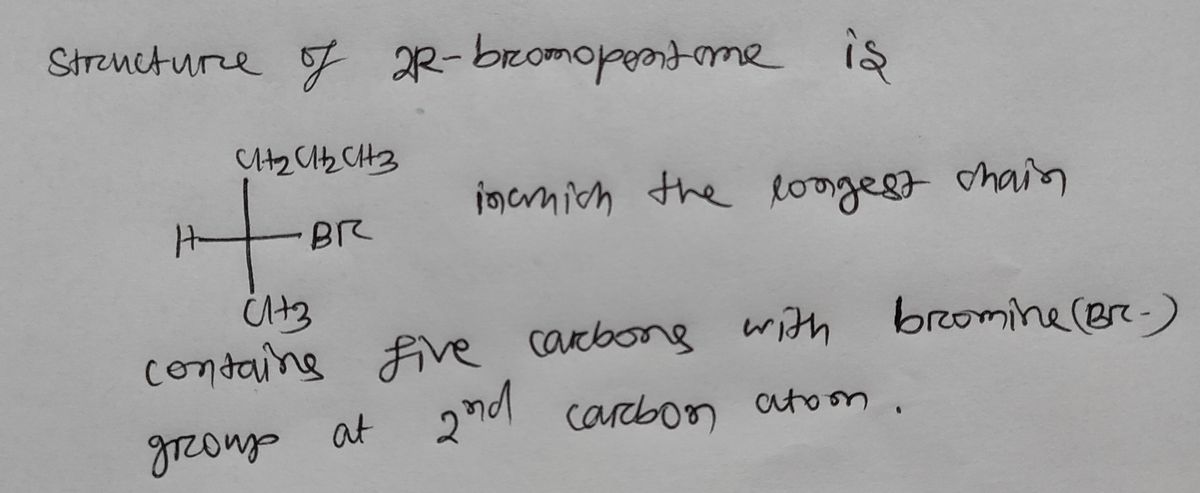 structure of 2R-bromopentane is
CH2CH2CH3
H BR inwhich the longest chain
CH3
contains five carbons with bromine(Br-)
group at 2nd carbon atom.